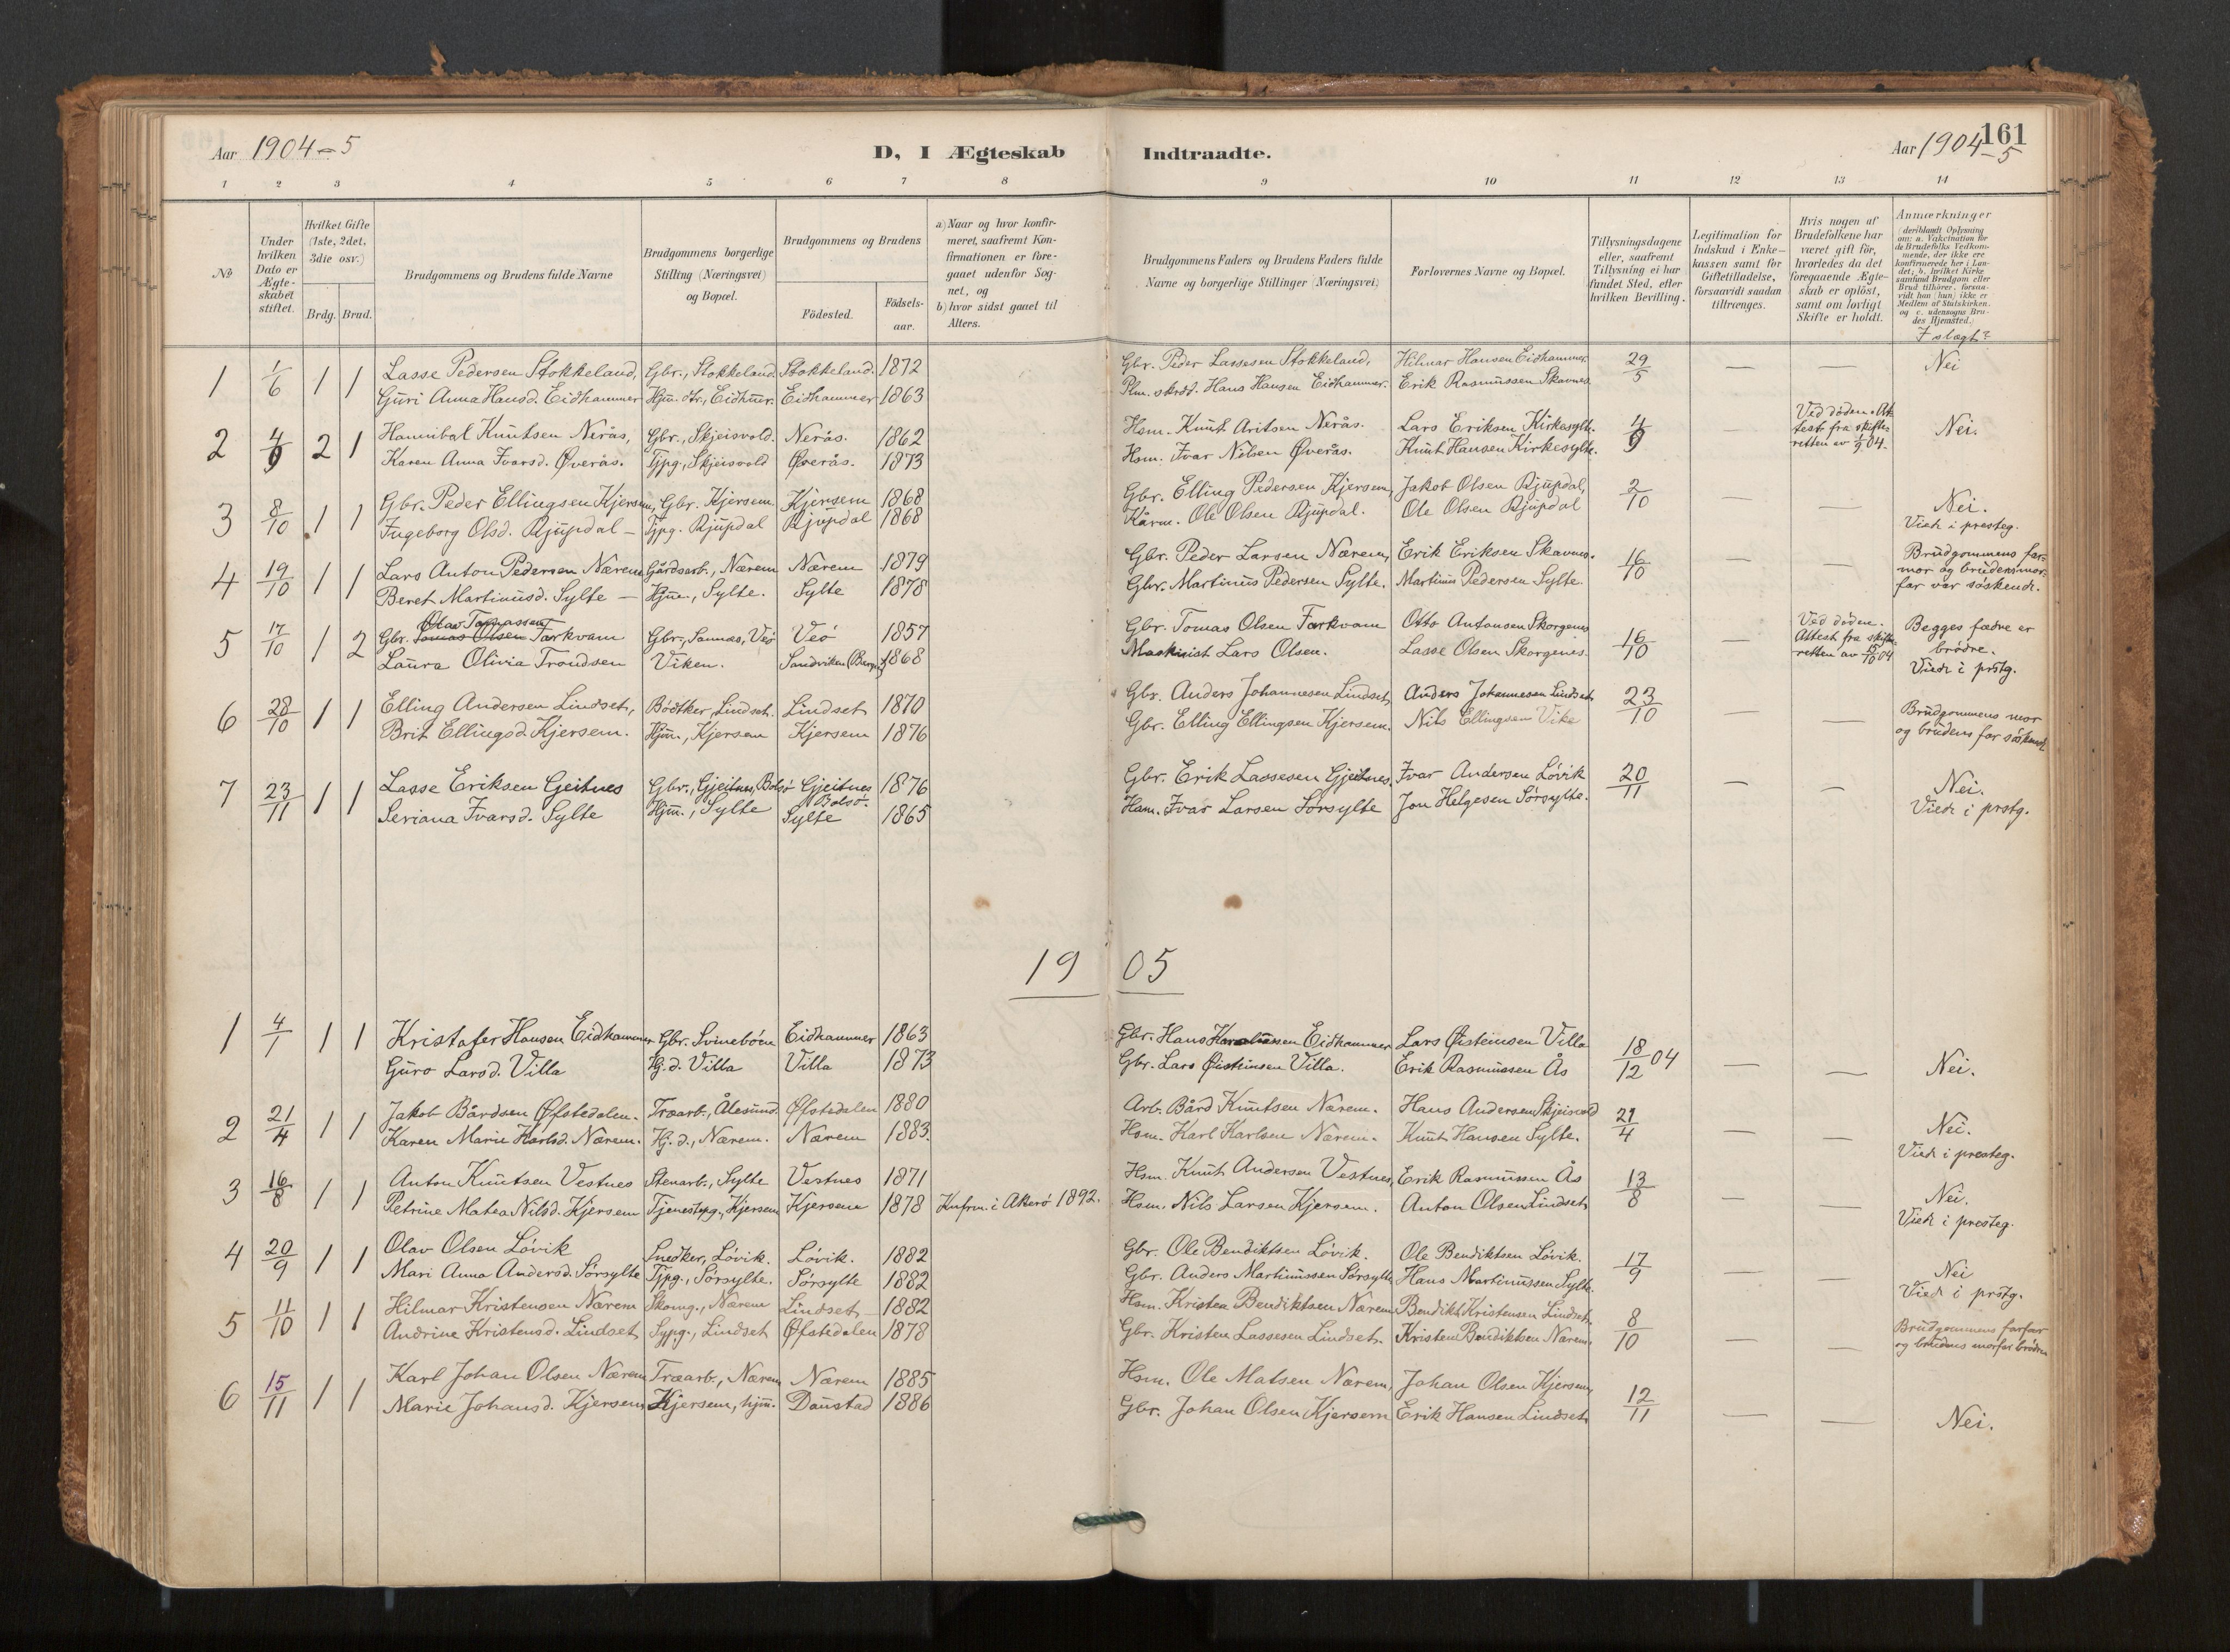 Aar 1904-5
D, I Ægteskab Indtraadte.
Aar 1904-5
161
1 2 3 4 5 6 7 8 9 10 11 12 13 14
No
Under hvilken Dato er Ægte-skabet stiftet.
Hvilket Gifte (1ste, 2det, 3die osv.)
Brdg. Brud.
Brudgommens og Brudens fulde Navne
Brudgommens borgerlige Stilling (Næringsvei) og Bopæl.
Brudgommens og Brudens
Födested.
Födsels-aar.
a) Naar og hvor konfir-meret, saafremt Kon-firmationen er fore-gaaet udenfor Sog-net, og
b) hvor sidst gaaet til Alters.
Brudgommens Faders og Brudens Faders fulde Navne og borgerlige Stillinger (Næringsvei)
Forlovernes Navne og Bopæl.
Tillysningsdagene eller, saafremt Tillysning ei har fundet Sted, efter hvilken Bevilling.
Legitimation for Indskud i Enke-kassen samt for Giftetilladelse, forsaavidt saadan tiltrænges.
Hvis nogen af Brudefolkene har været gift för, hvorledes da det foregaaende Ægte-skab er oplöst, samt om lovligt Skifte er holdt.
Anmærkninger (deriblandt Oplysning om: a. Vakcination for de Brudefolks Vedkom-mende, der ikke ere konfirmerede her i Lan-det; b. hvilket Kirke samfund Brudgom eller Brud tilhörer, forsaa-vidt han (hun) ikke er Medlem af Statskirken. og c. udensogns Bru-des Hjemsted.)
I slægt?
1 1/6 1 1 Lasse Pedersen Stokkeland, Gbr., Stokkeland. Stokkeland. 1872 Gbr. Peder Lassesen Stokkeland, Hilmar Hansen Eidhammer. 29/5 — — Nei
Guri Anna Hansd. Eidhammer Hjm. dtr., Eidhmr. Eidhammer 1863 Plm. skrdd. Hans Hansen Eidhammer. Erik Rasmussen Skavnes.
2 4/9 2 1 Hannibal Knutsen Nerås, Gbr., Skjeisvold. Nerås. 1862 Hsm. Knut Aritsen Nerås. Lars Eriksen Kirkesylte. 4/9 — Ved döden. At-test fra skifte-retten av 1/9 04. Nei.
Karen Anna Ivarsd. Øverås. Tjpg., Skjeisvold Øverås. 1873 Hsm. Ivar Nilsen Øverås. Knut Hansen Kirkesylte.
3 8/10 1 1 Gbr. Peder Ellingsen Kjersem, Gbr. Kjersem. Kjersem 1868 Gbr. Elling Pedersen Kjersem, Jakob Olsen Rjupdal, 2/10 — — Nei.
Ingeborg Olsd. Rjupdal — Tjpg. Rjupdal Rjupdal 1868 Kårm. Ole Olsen Rjupdal. Ole Olsen Rjupdal Viet i presteg.
4 19/10 1 1 Lars Anton Pedersen Nærem Gårdsarb., Nærem Nærem 1879 Gbr. Peder Larsen Nærem, Erik Eriksen Skavnes. 16/10 — — Brudgommens far-mor og brudens mor-far var söskende.
Beret Martinusd. Sylte — Hjm., Sylte. Sylte 1878 Gbr. Martinus Pedersen Sylte. Martinus Pedersen Sylte.
Olav Tomassen
5 17/10 1 2 Gbr. Tomas Olsen Farkvam Gbr., Sannes, Veö Veö 1857 Gbr. Tomas Olsen Farkvam Otto Antonsen Skorgenes 16/10 — Ved döden. Attest fra skifte-retten av 15/10 04 Begges fædre er brödre. Viet i prstg.
Laura Olivia Trondsen Viken. Sandviken (Bergen) 1868 Maskinist Lars Olsen. Lasse Olsen Skorgenes.
6 28/10 1 1 Elling Andersen Lindset, Bödtker, Lindset. Lindset 1870 Gbr. Anders Johannesen Lindset, Anders Johannesen Lindset 23/10 — — Brudgommens mor og brudens far söskende.
Brit Ellingsd. Kjersem. Hjm., Kjersem Kjersem 1876 Gbr. Elling Ellingsen Kjersem. Nils Ellingsen Vike
7 23/11 1 1 Lasse Eriksen Gjeitnes Gbr., Gjeitnes, Bolsö Gjeitnes Bolsö. 1876 Gbr. Erik Lassesen Gjeitnes, Ivar Andersen Lövik 20/11 — — Nei.
Seriana Ivarsd. Sylte Hjm., Sylte Sylte 1865 Hsm. Ivar Larsen Sörsylte Jon Helgesen Sörsylte. Viet i prstg.
19 05
1 4/1 1 1 Kristafer Hansen Eidhammer Gbr. Svineböen Eidhammer 1863 Gbr. Hans Eidhammer Lars Østeinsen Villa 18/12 04 — — Nei.
Guro Larsd. Villa G. d. Villa Villa 1873 Gbr. Lars Øisteinsen Villa. Erik Rasmussen Ås
2 21/4 1 1 Jakob Bårdsen Øfstedalen. Træarb., Ålesund. Øfstedalen 1880 Arb. Bård Knutsen Nærem. Hans Andersen Skjeisvold 21/4 — — Nei.
Karen Marie Karlsd. Nærem. Hj. d., Nærem. Nærem 1883. Hsm. Karl Karlsen Nærem. Knut Hansen Sylte. Viet i presteg.
3 16/8 1 1 Anton Knutsen Vestnes Stenarb., Sylte Vestnes 1871 Hsm. Knut Andersen Vestnes, Erik Rasmussen Ås 13/8 — — Nei.
Petrine Matea Nilsd. Kjersem Tjenestepg., Kjersem Kjersem 1878 Knfrm. i Akerö 1892. Hsm. Nils Larsen Kjersem. Anton Olsen Lindset Viet i presteg.
4 20/9 1 1 Olav Olsen Lövik Snedker, Lövik. Lövik. 1882 Gbr. Ole Bendiktsen Lövik. Ole Bendiktsen Lövik. 17/9 — — Nei
Mari Anna Andersd. Sörsylte Tjpg., Sörsylte. Sörsylte 1882 Gbr. Anders Martinussen Sörsylte Hans Martinussen Sylte. Viet i prstg.
5 11/10 1 1 Hilmar Kristensen Nærem Skomg., Nærem Lindset 1882 Hsm. Kristen Bendiktsen Nærem Bendikt Kristensen Lindset. 8/10 — — Brudgommens farfar og brudens morfar brödre
Andrine Kristensd. Lindset Sypg., Lindset Øfstedalen 1878 Gbr. Kristen Lassesen Lindset. Kristen Bendiktsen Nærem.
6 15/11 1 1 Karl Johan Olsen Nærem Træarb., Nærem Nærem 1885 Hsm. Ole Matsen Nærem, Johan Olsen Kjersem, 12/11 — — Nei.
Marie Johansd. Kjersem Kjersem, hjm. Daustad 1886 Gbr. Johan Olsen Kjersem Erik Hansen Lindset